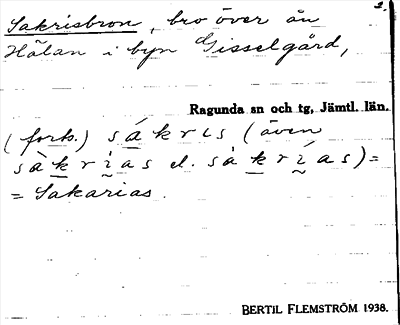 2.
Sakrisbron, bro över ån
Hålan i byn Gisselgård,
Ragunda sn och tg, Jämtl. län.
(fork.) sákris (även
sàkrìas el. sàkrías)=
= Sakarias.
BERTIL FLEMSTRÖM 1938.